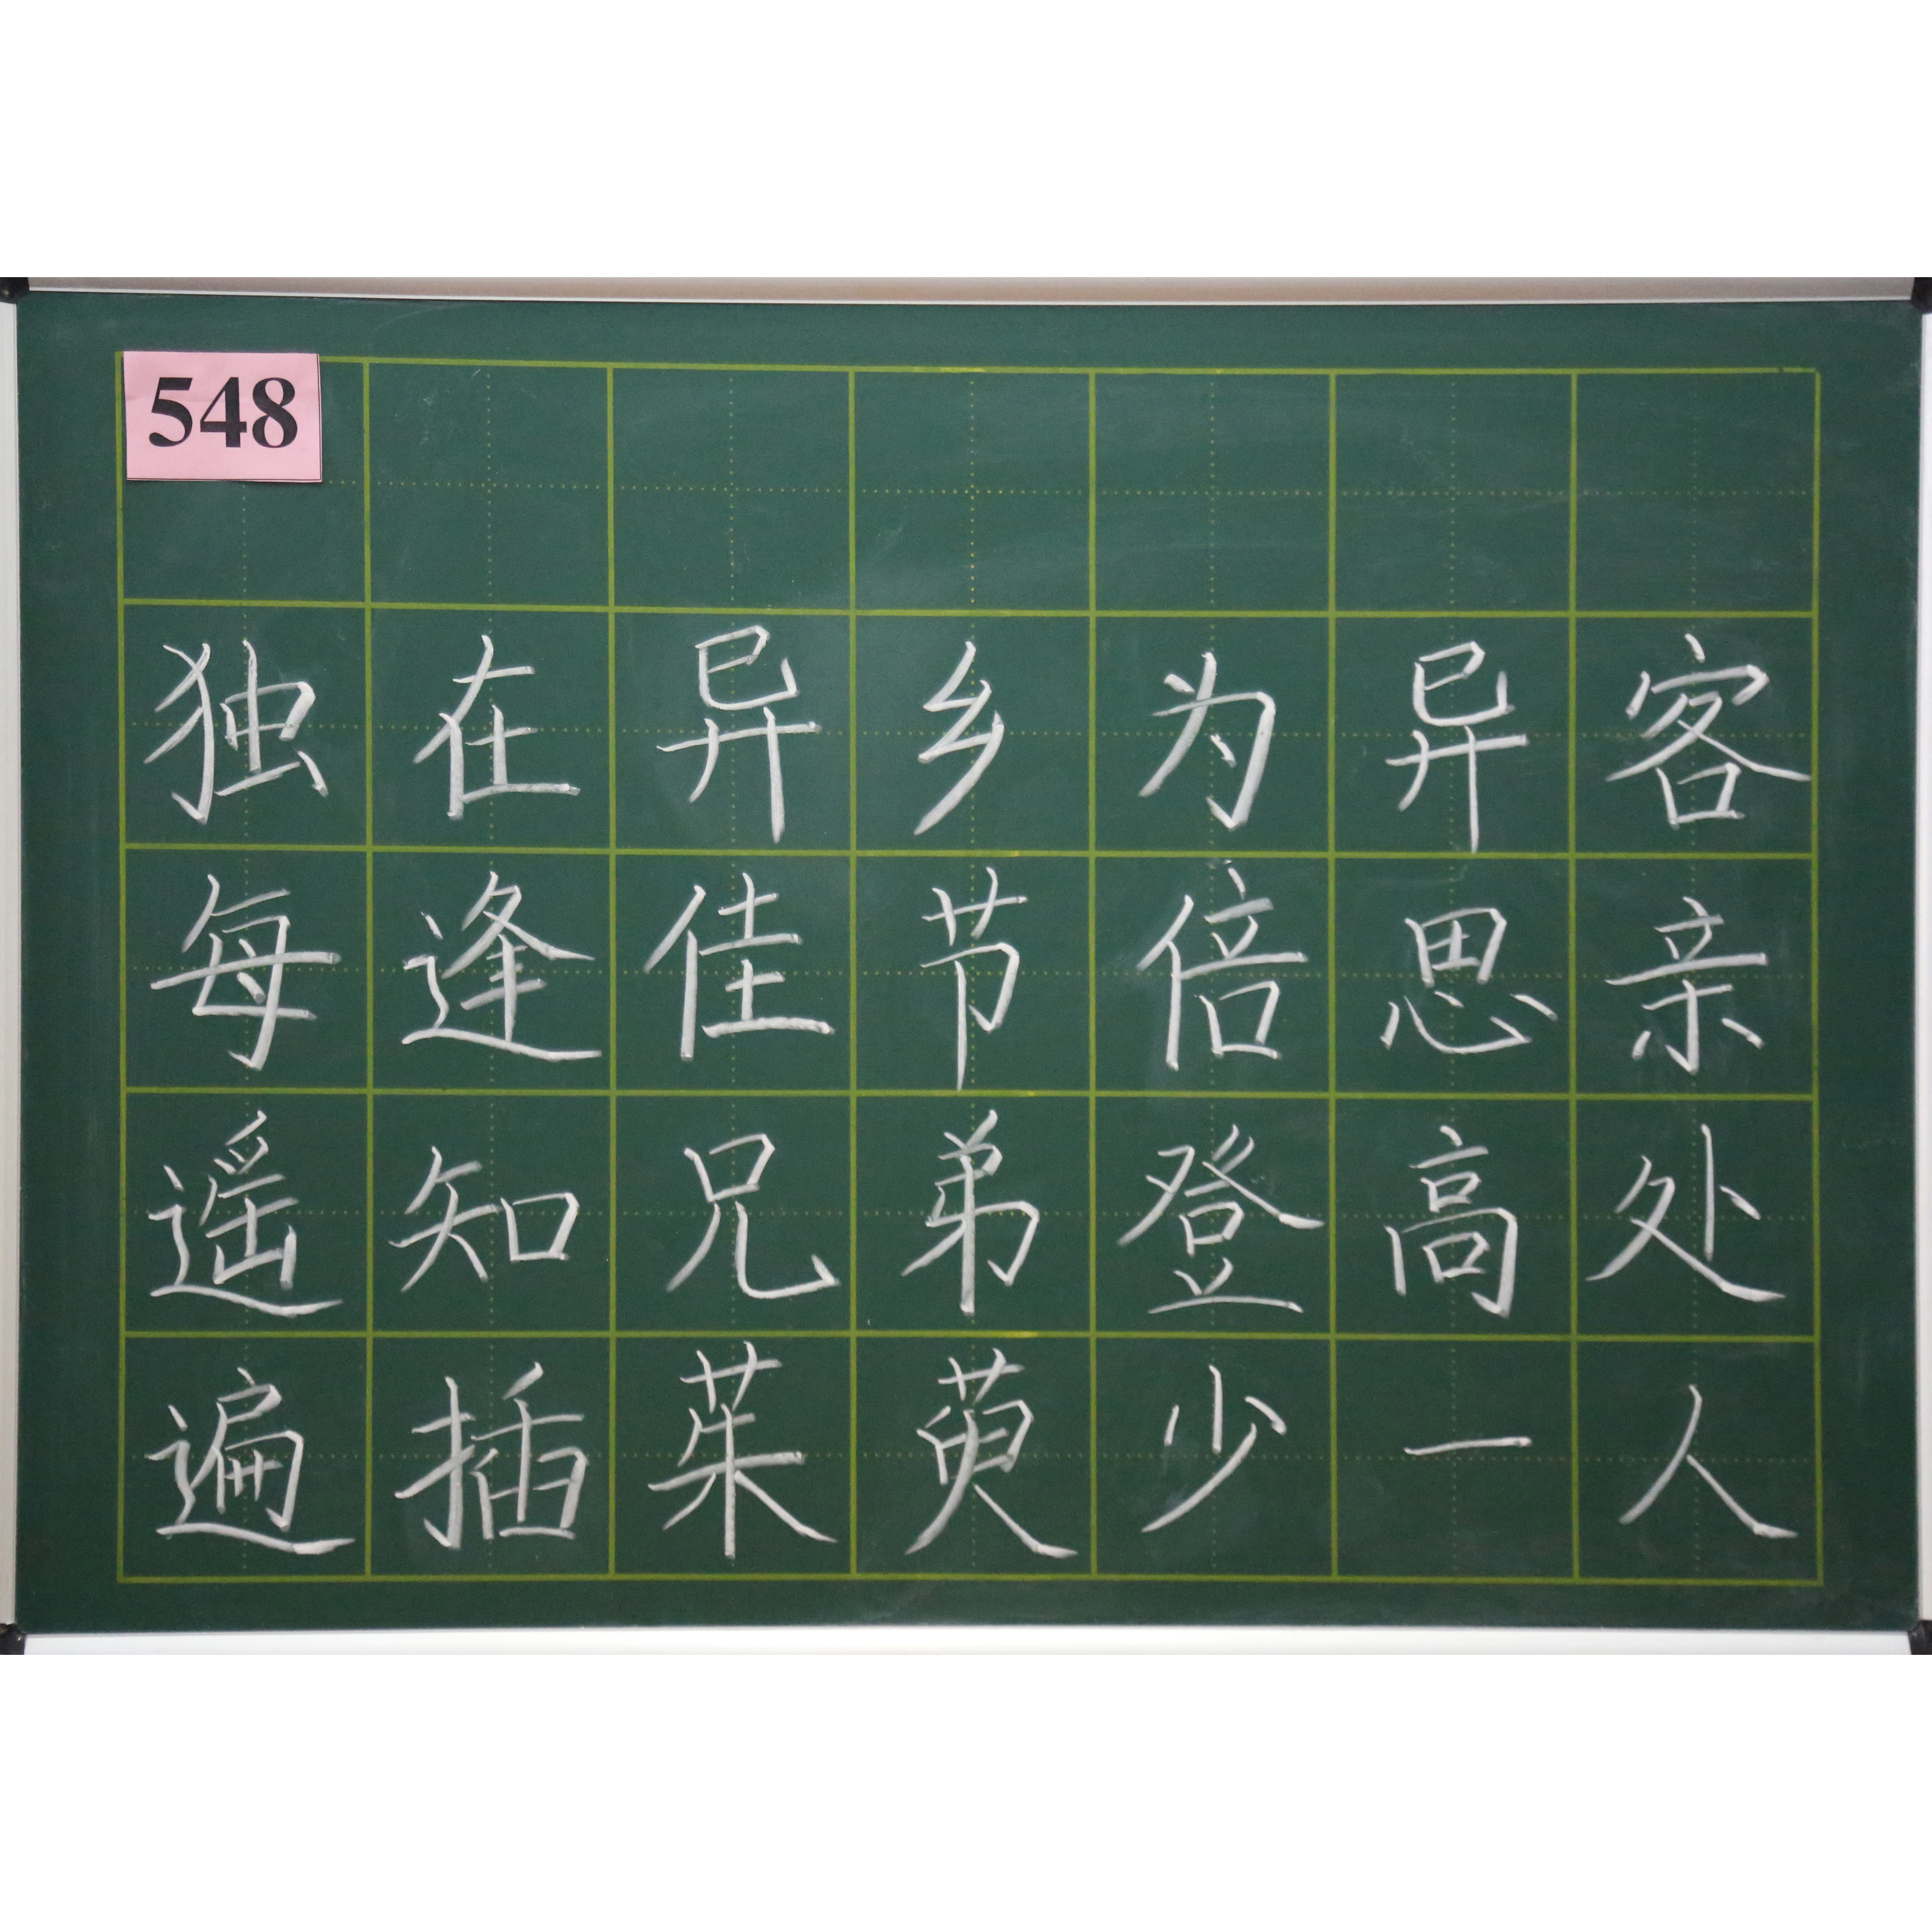 548
独在异乡为异客
每逢佳节倍思亲
遥知兄弟登高处
遍插茱萸少一人